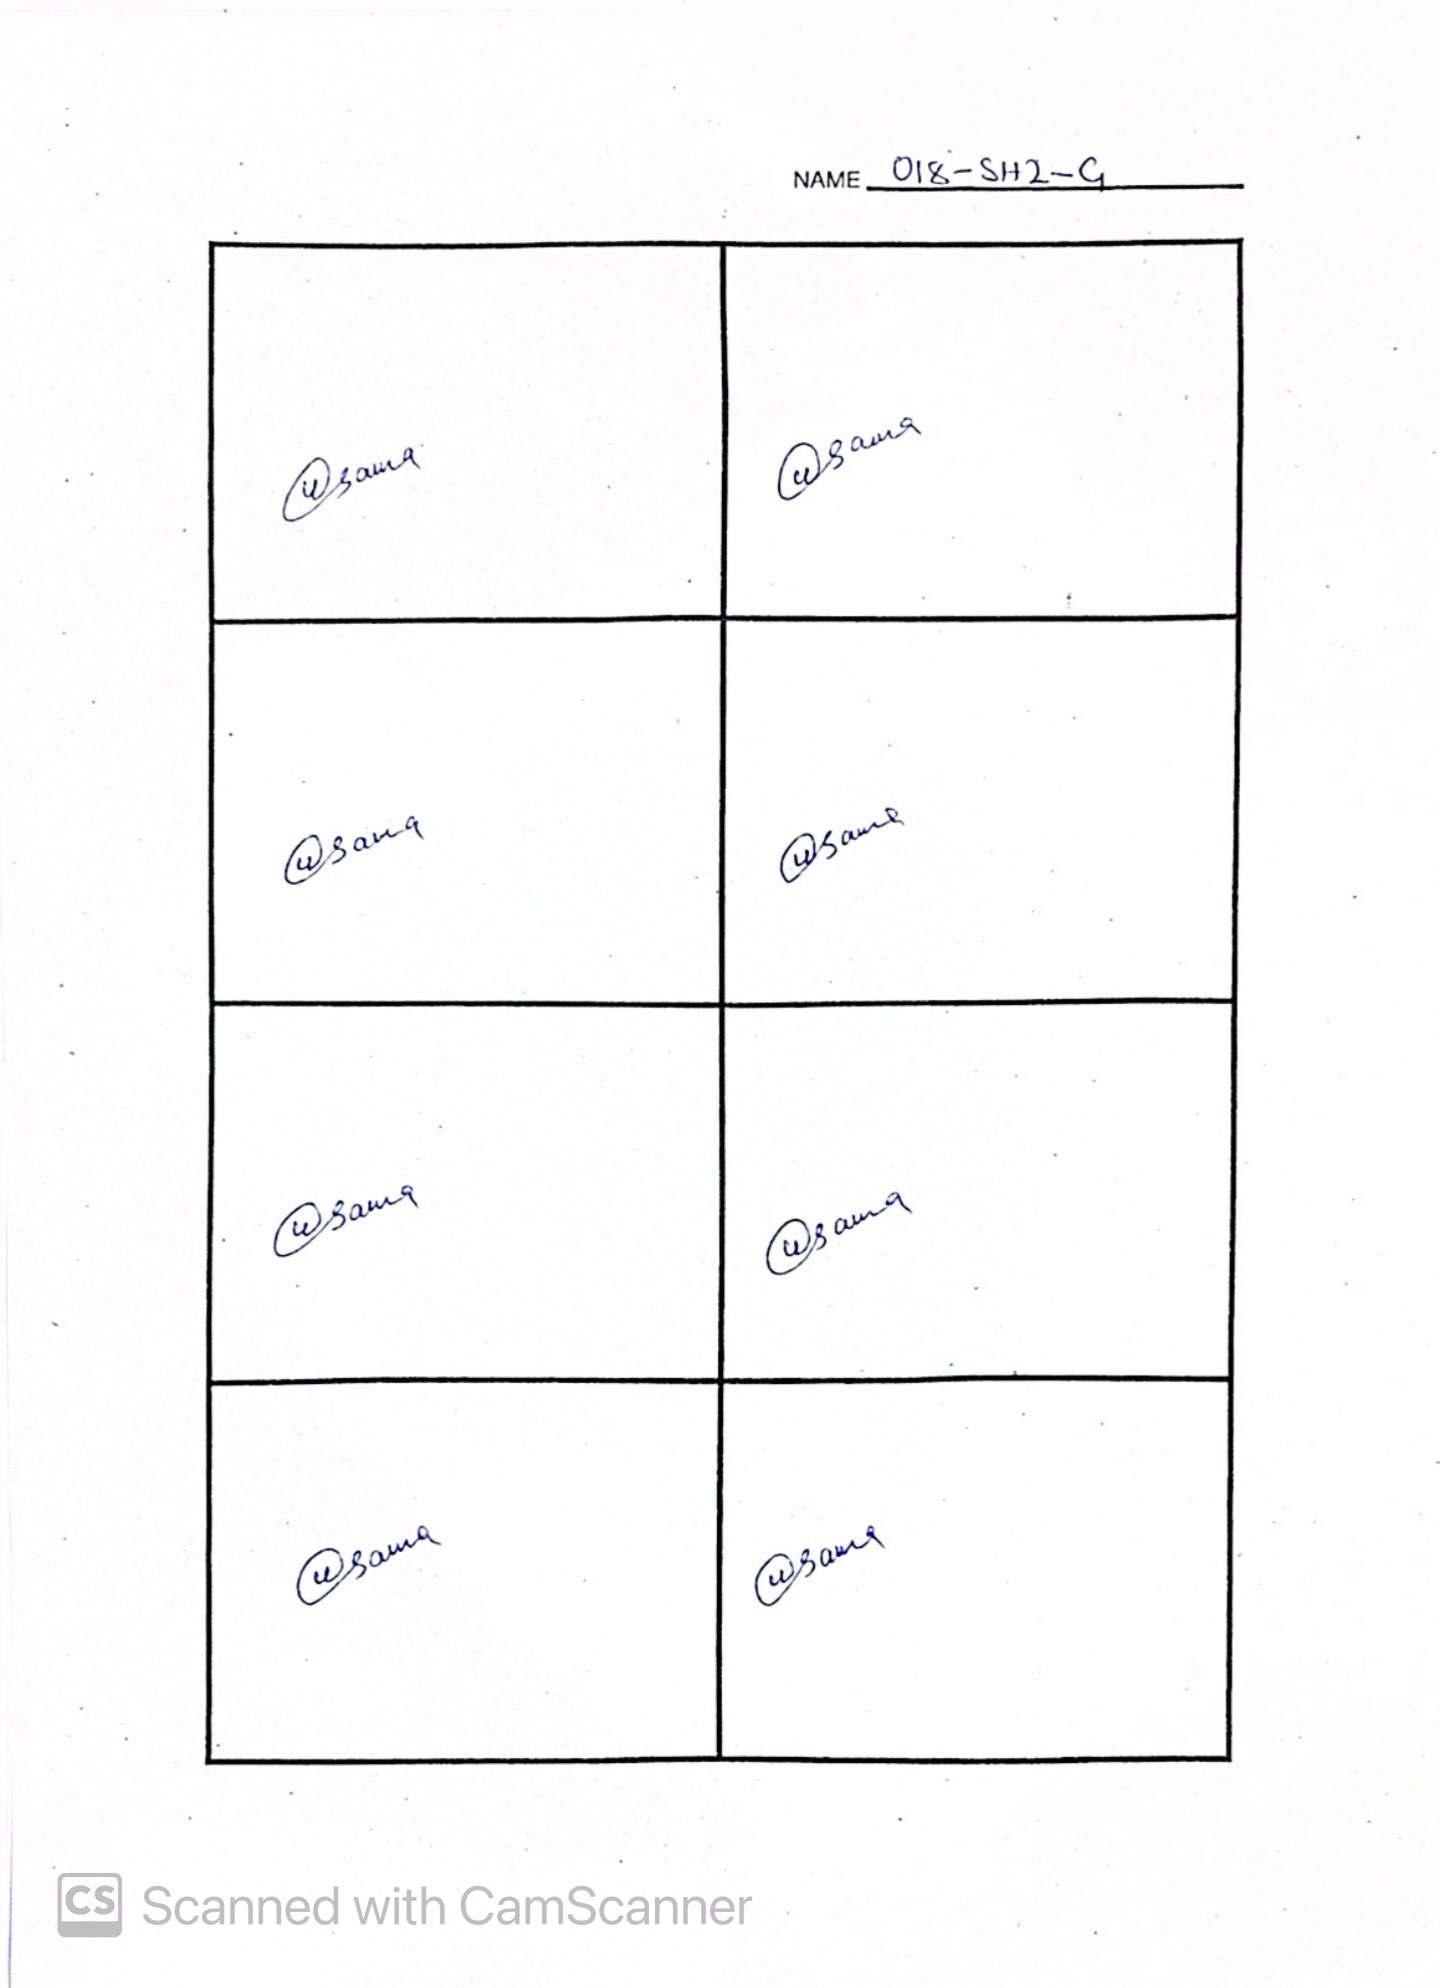 NAME 018-SH2-G
Usama Usama
Usama Usama
Usama Usama
Usama Usama
CS Scanned with CamScanner